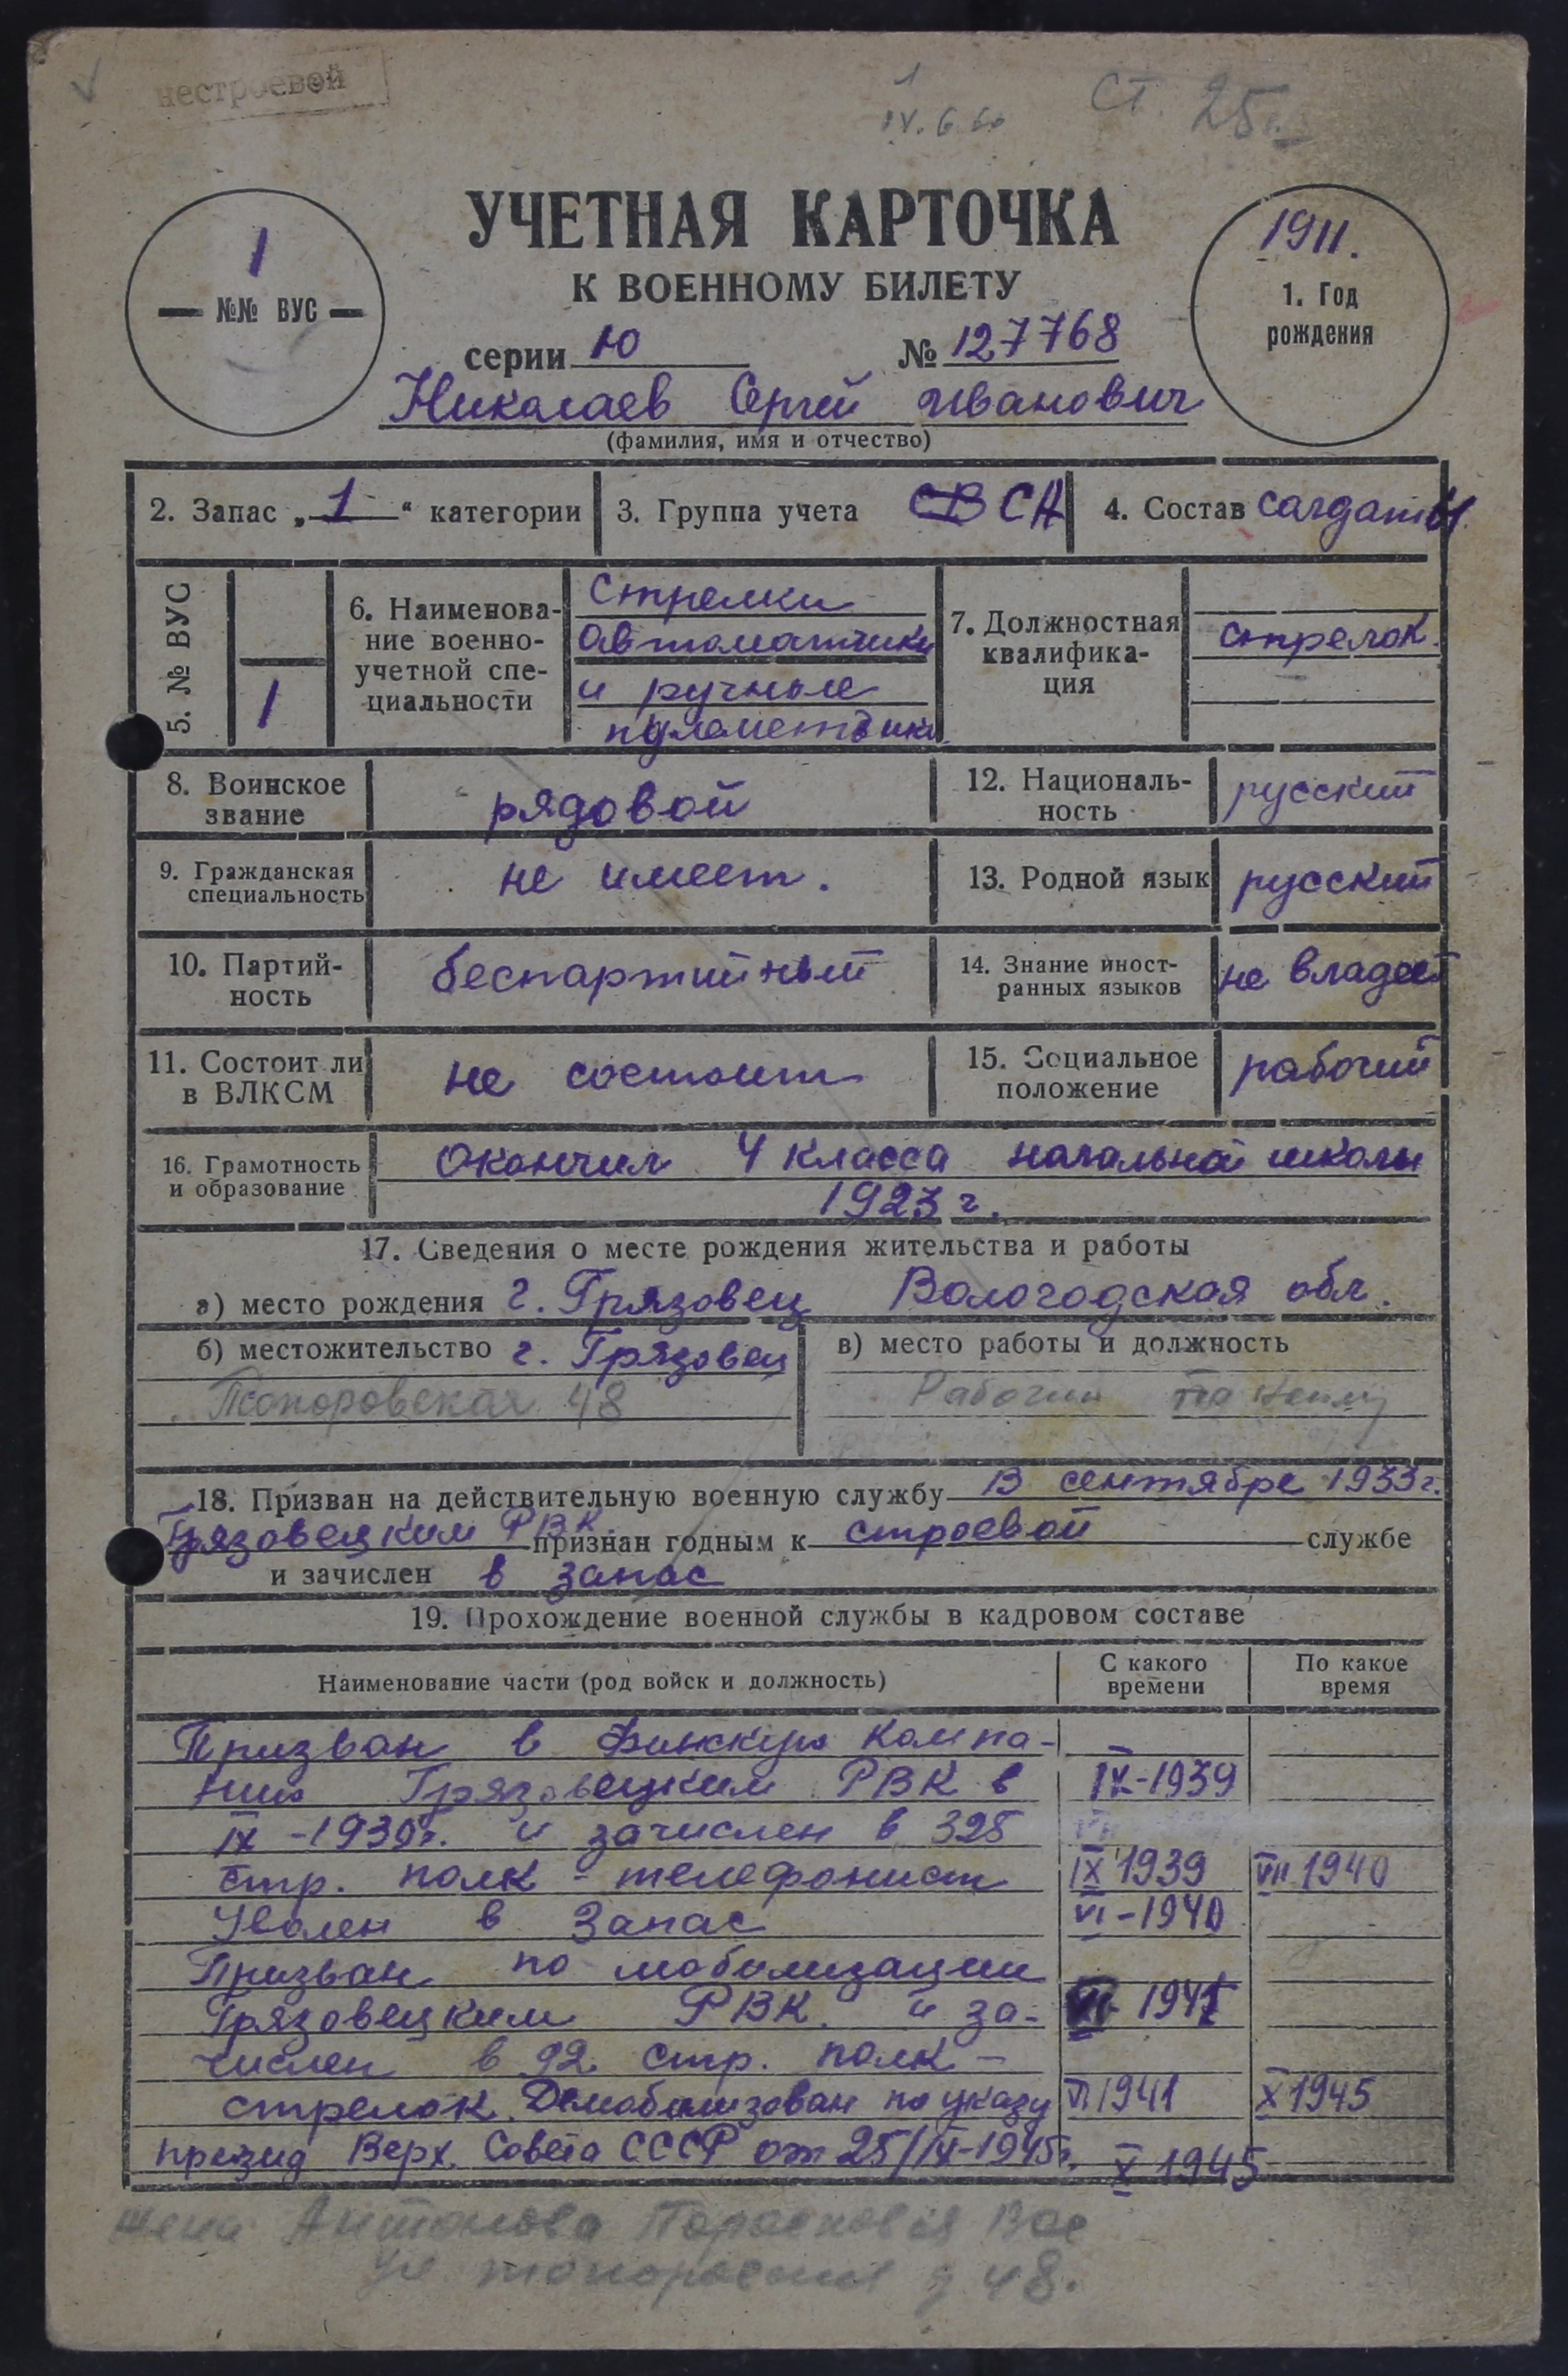 нестроевой
1
ст. 25 г.
УЧЕТНАЯ КАРТОЧКА
К ВОЕННОМУ БИЛЕТУ
1
№№ ВУС
1911.
1. Год
рождения
серии Ю № 127768
Николаев Сергей Иванович
(фамилия, имя и отчество)
2. Запас „1“ категории
3. Группа учета СВ СА
4. Состав солдаты
5. № ВУС
1
6. Наименова-
ние военно-
учетной спе-
циальности
Стрелки
автоматчики
и ручные
пулеметчики
7. Должностная
квалифика-
ция
стрелок.
8. Воинское
звание
рядовой
12. Националь-
ность
русский
9. Гражданская
специальность
не имеет.
13. Родной язык
русский
10. Партий-
ность
беспартийный
14. Знание иност-
ранных языков
не владеет
11. Состоит ли
в ВЛКСМ
не состоит
15. Социальное
положение
рабочий
16. Грамотность
и образование
Окончил 4 класса начальной школы
1923 г.
17. Сведения о месте рождения жительства и работы
а) место рождения г. Грязовец Вологодская обл.
б) местожительство г. Грязовец
Топоровская 48
в) место работы и должность
Рабочий
18. Призван на действительную военную службу В сентябре 1933г.
Грязовецким РВК признан годным к строевой службе
и зачислен в запас
19. Прохождение военной службы в кадровом составе
Наименование части (род войск и должность)
С какого
времени
По какое
время
Призван в Финскую компа-
нию Грязовецким РВК в IX-1939
IX-1939г. и зачислен в 328
стр. полк - телефонист IX 1939 VII 1940
Уволен в запас VI-1940
Призван по мобилизации
Грязовецким РВК. и за- VI 1941
числен в 92 стр. полк -
стрелок. Демобилизован по указу VI 1941 X 1945
презид Верх. Совета СССР от 25/IX-1945г. X 1945
жена Антонова Парасковья Вас
ул д 48.